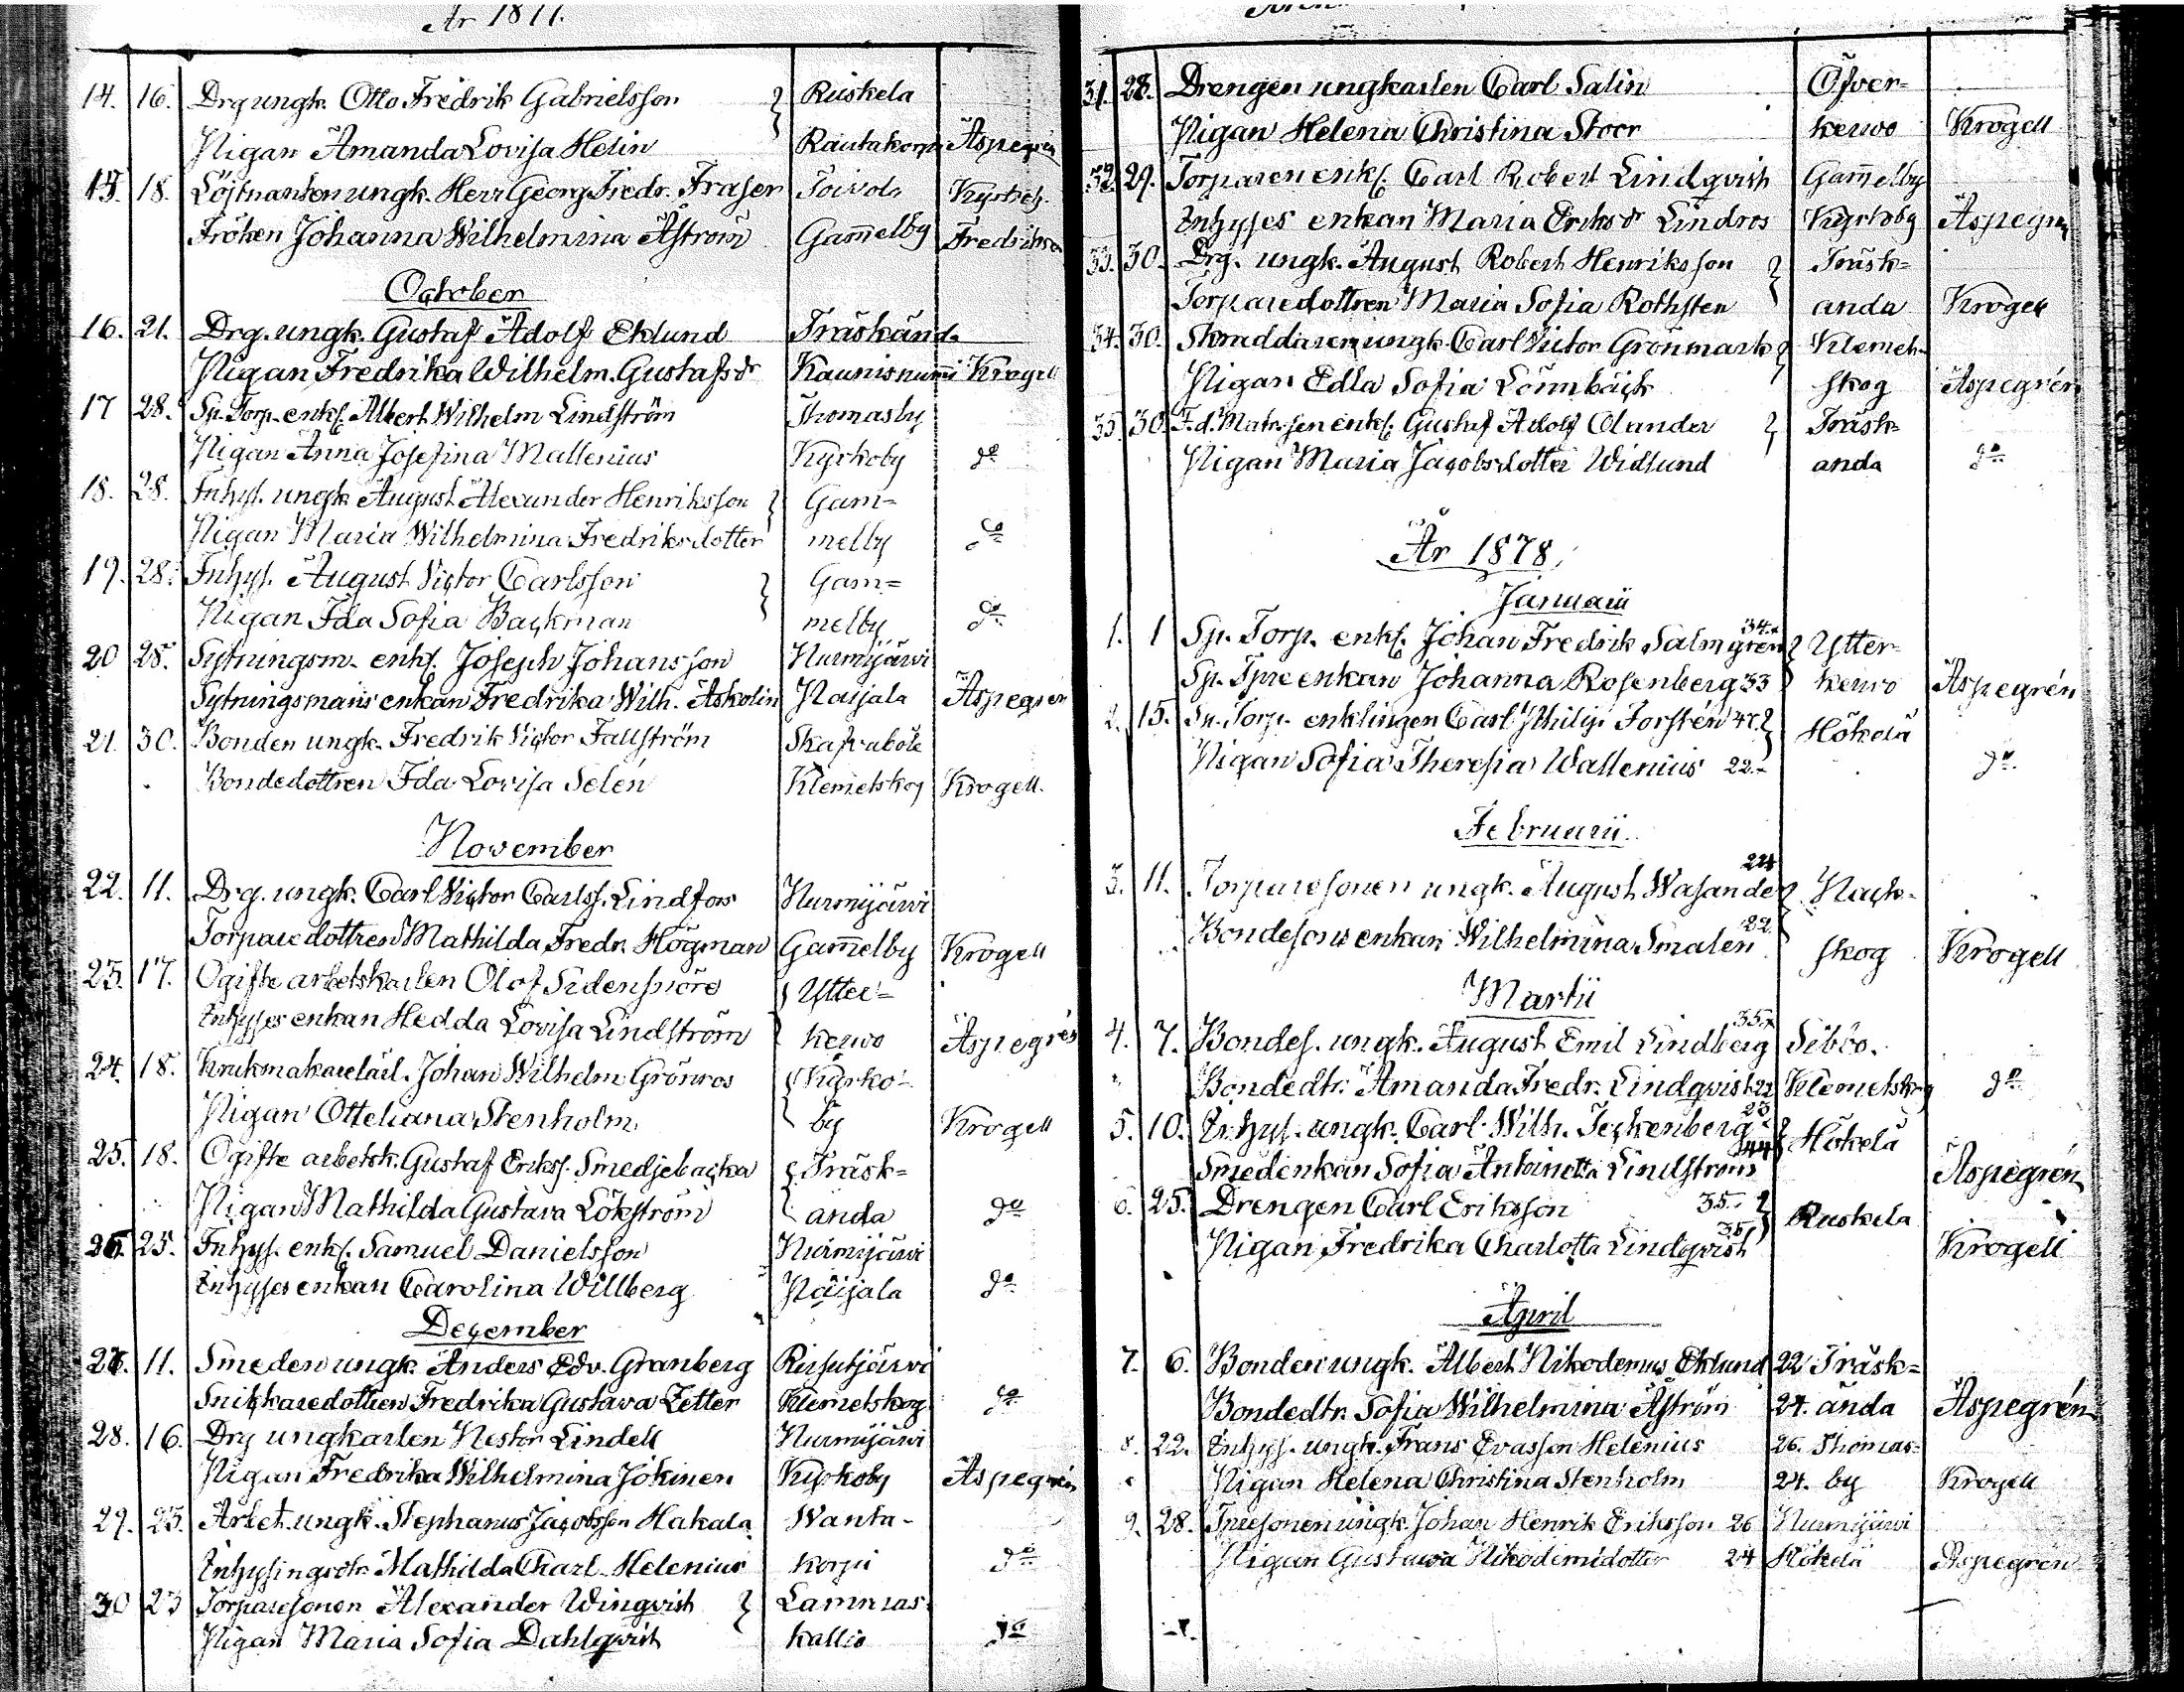 År 1877.
14. 16. Drg ungk. Otto Fredrik Gabrielsson Ruskela
Pigan Amanda Lovisa Helin Rautakorpi Aspegrén
15. 18. Löjtnanten ungk. Herr George Fredr. Fraser Toivola Kyrkoh.
Fröken Johanna Wilhelmina Åström Gam̄elby Fredrikson
October
16. 21. Drg. ungk. Gustaf Adolf Eklund Träskända
Pigan Fredrika Wilhelm. Gustafsdr Kaunisnum̄i Krogell
17 28. Sp. Torp. enkl. Albert Wilhelm Lindström Thomasby
Pigan Anna Josefina Mallenius Kyrkoby do
18. 28. Inhys. ungk August Alexander Henriksson Gam=
Pigan Maria Wilhelmina Fredriksdotter melby do
19. 28. Inhys. August Victor Carlsson Gam=
Pigan Ida Sofia Backman melby do
20 28. Sytningsm. enkl. Joseph Johansson Nurmijärvi
Sytningsmans enkan Fredrika Wilh. Askolin Paijala Aspegrén
21. 30. Bonden ungk. Fredrik Victor Fallström Skafvaböle
Bondedottren Ida Lovisa Selén Klemetskog Krogell.
November
22. 11. Drg. ungk. Carl Victor Carlss. Lindfors Nurmijärvi
Torparedottren Mathilda Fredr. Högman Gam̄elby Krogell
23. 17. Ogifte arbetskarlen Olof Sidensnöre Ytter=
Inhyses enkan Hedda Lovisa Lindström kerwo Aspegrén
24. 18. Krukmakarelärl. Johan Wilhelm Grönros Kyrko-
Pigan Otteliana Stenholm by Krogell
25. 18. Ogifte arbetsk. Gustaf Erikss. Smedjebacka Träsk=
Pigan Mathilda Gustava Lökström ända do
26. 25. Inhys. enkl. Samuel Danielsson Nurmijärvi
Inhyses enkan Carolina Willberg Paijala do
December
27. 11. Smeden ungk. Anders Edv. Granberg Rusutjärvi
Snickaredottren Fredrika Gustava Zetter Klemetskog do
28. 16. Drg ungkarlen Nestor Lindell Nurmijärvi
Pigan Fredrika Wilhelmina Jokinen Kyrkoby Aspegrén
29. 23. Arbet. ungk. Stephanus Jacobsson Hakala Wanta-
Inhysingsdtr. Mathilda Charl. Helenius korpi do
30 23 Torparesonen Alexander Winqvist Lammas-
Pigan Maria Sofia Dahlqvist kallio do
31. 28. Drengen ungkarlen Carl Salin Öfver-
Pigan Helena Christina Stoor kerwo Krogell
32. 29. Torparen enkl. Carl Robert Lindqvist Gam̄elby
Inhyses enkan Maria Eriksdr Lindros Kyrkoby Aspegrén
33. 30. Drg. ungk. August Robert Henriksson Träsk=
Torparedottren Maria Sofia Rothsten ända Krogell
34. 30. Skräddaren ungk. Carl Victor Grönmark Klemet-
Pigan Edla Sofia Lönnbäck skog Aspegrén
35 30. F.d. Matrosen enkl. Gustaf Adolf Olander Träsk=
Pigan Maria Jacobsdotter Widlund ända do
År 1878.
Januarii
1. 1 Sp. Torp. enkl. Johan Fredrik Salmgren 34. Ytter-
Sp. Tpre enkan Johanna Rosenberg 33 kerwo Aspegrén
2. 15. Sp. Torp. enklingen Carl Philip Forstén 47. Hökelä
Pigan Sofia Theresia Wallenius 22. do
Februarii
3. 11. Torparesonen ungk. August Wasander 24 Nack-
Bondesons enkan Wilhelmina Smalén 22. skog Krogell
Martii
4. 7. Bondes. ungk. August Emil Lindberg 35. Sibbo.
Bondedtr. Amanda Fredr. Lindqvist 22 Klemetskog do
5. 10. Inhys. ungk. Carl Wilh. Teckenberg 23 Hökelä
Smedenkan Sofia Antoinetta Lindström 44 Aspegrén
6. 25. Drengen Carl Eriksson 35. Ruskela
Pigan Fredrika Charlotta Lindqvist 35. Krogell
April
7. 6. Bonden ungk. Albert Nikodemus Eklund 22 Träsk=
Bondedtr. Sofia Wilhelmina Åström 24. ända Aspegrén
8. 22. Inhys. ungk. Frans Evasson Helenius 26. Thomas-
Pigan Helena Christina Stenholm 24. by Krogell
9. 28. Tpresonen ungk. Johan Henrik Eriksson 26 Nurmijärvi
Pigan Gustava Nikodemidotter 24 Hökelä Aspegrén